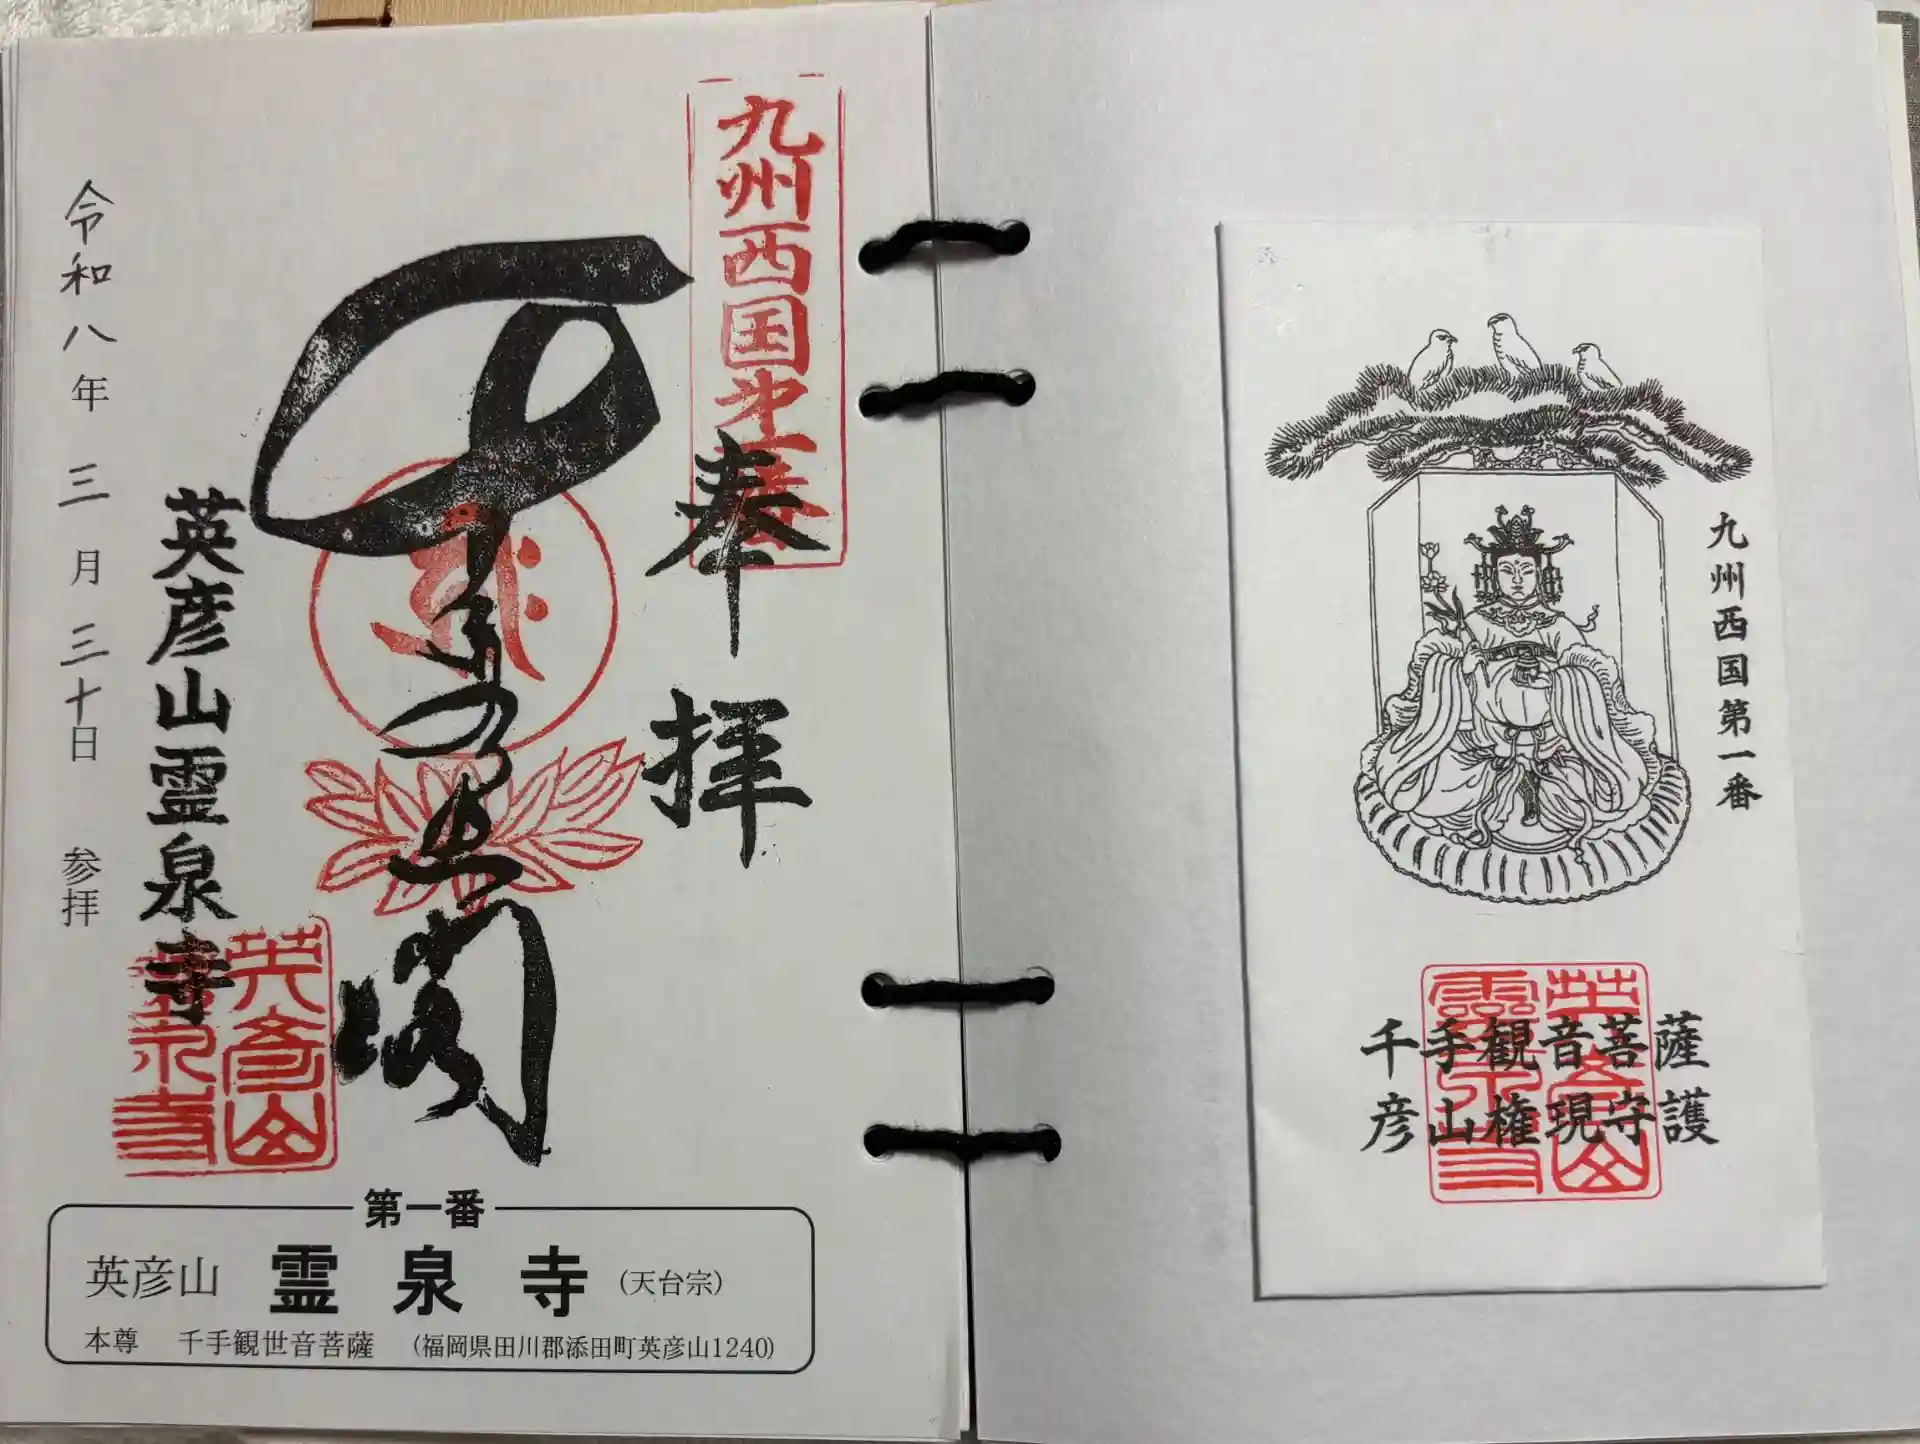 九州西国第一番
奉拝
千手
大悲閣
英彦山霊泉寺
英彦山
霊泉寺
令和八年 三月三十日 参拝
第一番
英彦山 霊泉寺 (天台宗)
本尊 千手観世音菩薩 (福岡県田川郡添田町英彦山1240)
九州西国第一番
千手観音菩薩
彦山権現守護
英彦山
霊泉寺